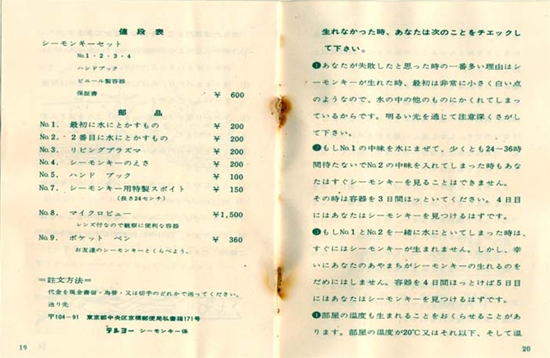 値段表
シーモンキーセット
No.1・2・3・4
ハンドブック
ビニール製容器
保証書 ¥ 600
部品
No.1. 最初に水にとかすもの ¥ 200
No.2. 2番目に水にとかすもの ¥ 200
No.3. リビングプラズマ ¥ 200
No.4. シーモンキーのえさ ¥ 200
No.5. ハンド ブック ¥ 100
No.7. シーモンキー用特製スポイト ¥ 150
(長さ24センチ)
No.8. マイクロビュー ¥1,500
レンズ付なので観察に便利な容器
No.9. ポケット ペン ¥ 360
お友達のシーモンキーとくらべよう。
=註文方法=
代金を現金書留・為替・又は切手のどれかで送ってください。
送り先
〒104-91 東京都中央区京橋郵便局私書箱171号
テンヨー シーモンキー係
19
生れなかった時、あなたは次のことをチェックし
て下さい。
❶あなたが失敗したと思った時の一番多い理由はシ
ーモンキーが生れた時、最初は非常に小さく白い点
のようなので、水の中の他のものにかくれてしまっ
ているからです。明るい光を通じて注意深くさがし
て下さい。
❷もしNo.1の中味を水にまぜて、少くとも24〜36時
間待たないでNo.2の中味を入れてしまった時もあな
たはすぐシーモンキーを見ることはできません。
その時は容器を3日間ほっといてください。4日目
にはあなたはシーモンキーを見つけるはずです。
❸もしNo.1とNo.2を一緒に水にといてしまった時は、
すぐにはシーモンキーが生まれません。しかし、幸
いにあなたのあやまちがシーモンキーの生れるのを
だめにはしません。容器を4日間ほっとけば5日目
にはあなたはシーモンキーを見つけるはずです。
❹部屋の温度も生まれることをおくらせることがあ
ります。部屋の温度が20℃又はそれ以下、そして温
20